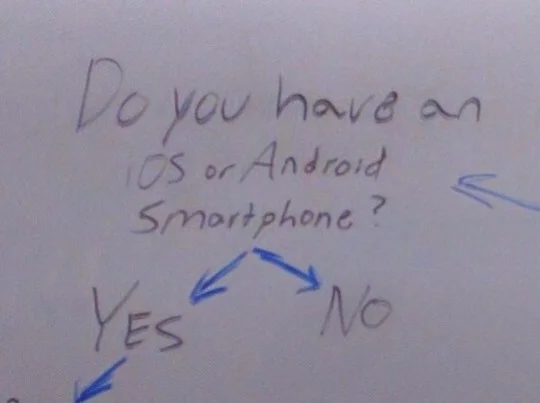 Do you have an
iOS or Android
Smartphone?
YES
NO